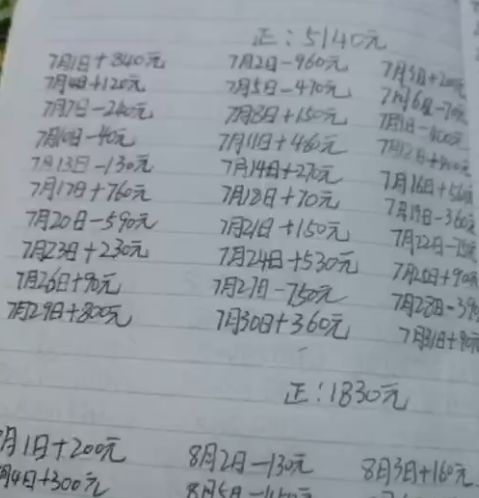 正：5140元
7月1日+340元 7月2日-960元 7月3日+200
7月4日+120元 7月5日-470元 7月6日-70元
7月7日-240元 7月8日+150元
7月10日-40元 7月11日+460元 7月12日
7月13日-130元 7月14日+270元 7月16日
7月17日+760元 7月18日+70元 7月19日-360元
7月20日-590元 7月21日+150元 7月22日
7月23日+230元 7月24日+530元 +90元
7月26日+90元 7月27日-750元 7月28日-390
7月29日+800元 7月30日+360元 7月31日
正：1830元
月1日+200元 8月2日-130元 8月3日+160元
月4日+300元 8月5日